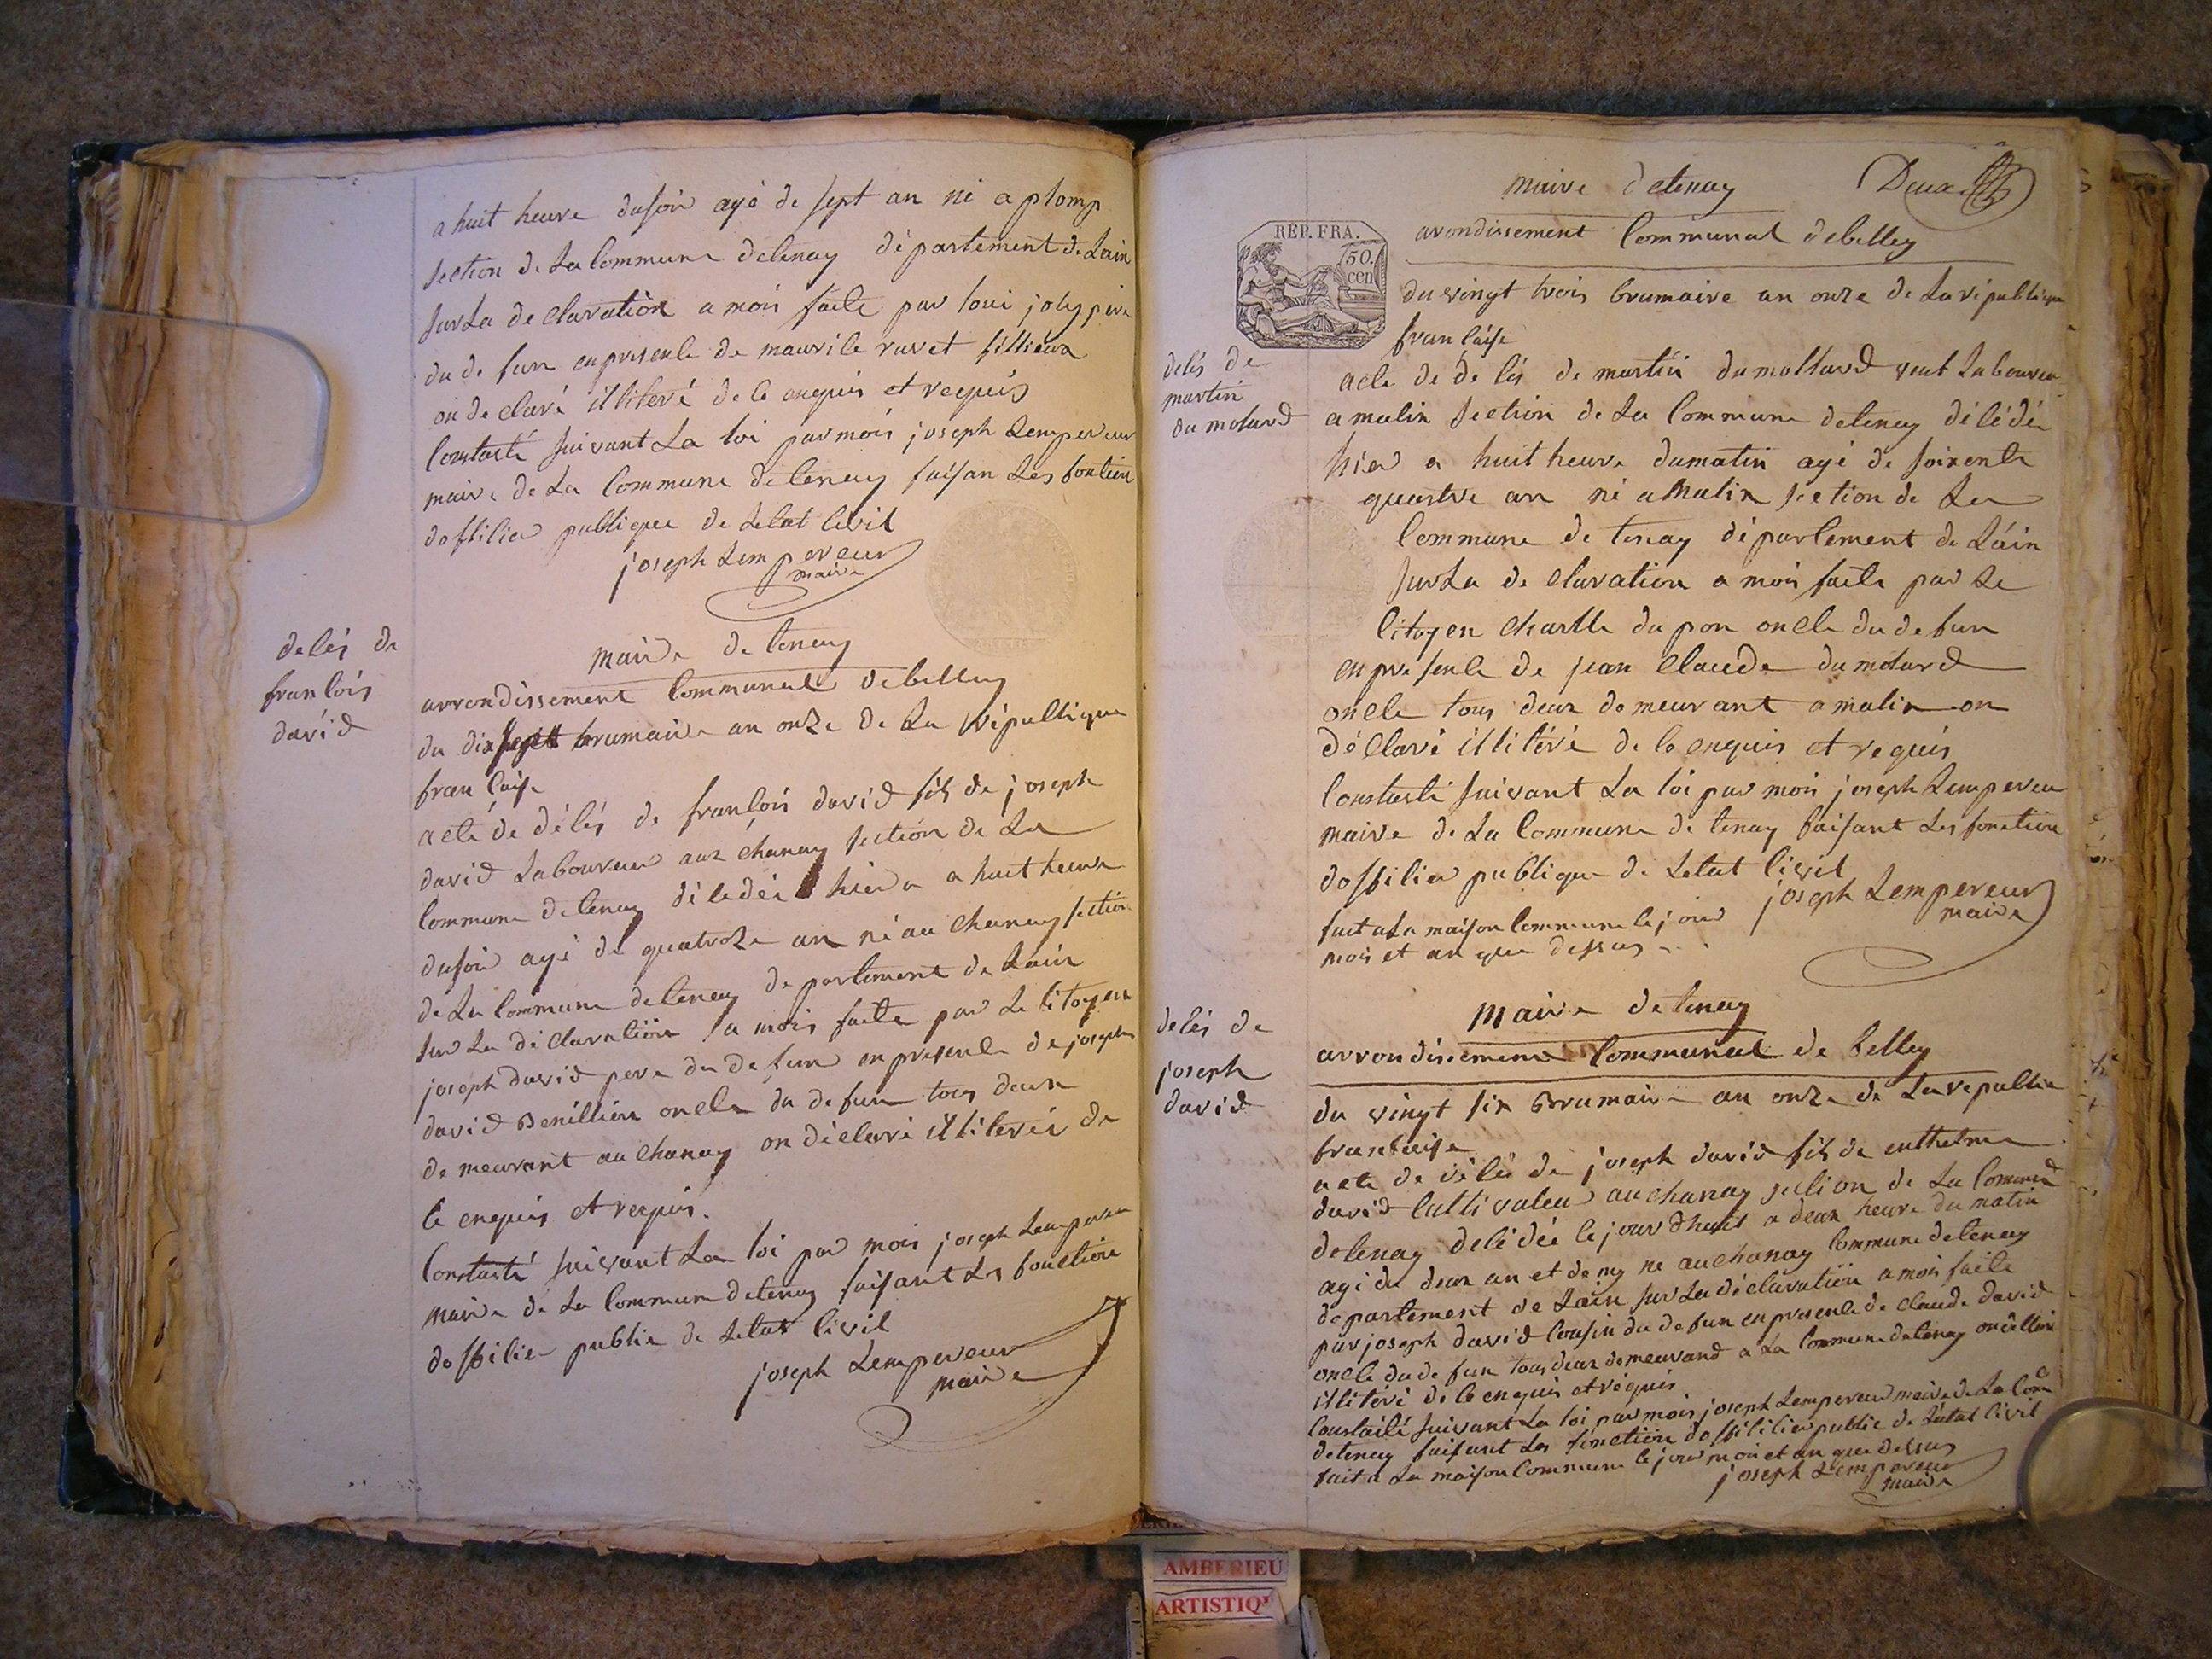 a huit heure dusoir agé de sept an né a plomp
section de La Commune detenay département de Lain
sur La declaration a mois faite par loui joly pere
du defun en presence de maurile ravet fillieux
on declaré illiteré de ce enquis et requis
Constaté suivant La loi par mois joseph Lempereur
maire de La Commune detenay faisan Les fontion
dofficier publique de Letat Civil
joseph Lempereur
maire
decés de
francois
david
maire de tenay
arrondissement Communal debelley
du dix sept brumaire an onze de La républiqque
francaise
acte de décés de francois david fils de joseph
david Laboureur aux chanay section de La
Commune detenay décedée hier a huit heure
dusoir agé de quatorze an né au chanay section
de La Commune detenay département de Lain
sur La déclaration a mois faite par Le Citoyen
joseph david pere du defun en presence de joseph
david oncle du defun tous deux
demeurant au chanay on déclaré illiterés de
ce enquis et requis.
Constaté suivant La loi par mois joseph Lempereur
maire de La Commune detenay faisant Les fonction
dofficier public de Letat Civil
joseph Lempereur
maire
maire detenay
Deux
arondissement Communal debelley
REP. FRA.
50.
cen
du vingt trois brumaire an onze de La république
francaise
decés de
martin
dumolard
acte de decés de martin dumollard Laboureur
a malin section de La Commune detenay décédée
hier a huit heure dumatin agé de soixente
quatre an né a Malin section de La
Commune de tenay département de Láin
sur La declaration a mois faite par Le
Citoyen Charlle dupon oncle du defun
en presence de jean Claude dumolard
oncle tous deux demeurant a malin on
déclaré illitéré de ce enquis et requis
Constaté suivant La loi par mois joseph Lempereur
maire de La Commune de tenay faisant Les fonction
dofficier publique de Letat Civil
joseph Lempereur
maire
fait a La maison Commune le jour
mois et an que dessus
maire detenay
decés de
joseph
david
arrondissement Communal de belley
du vingt six Brumaire an onze de La republic
francaise
acte de décés de joseph david fils de enthelme
david Cultivateur au chanay section de La Commune
detenay decédée le jour dhuit a deux heure du matin
agé de deux an et demy né au chanay Commune detenay
département de Lain sur La déclaration a mois faite
par joseph david Cousin du defun en presence de claude david
oncle du defun tous deux demeurand a La Commune detenay on déclaré
illitéré de ce enquis et réquis
Constaté suivant La loi par mois joseph Lempereur maire de La Come
detenay faisant Les fonction dofficier public de Létat Civil
fait a La maison Commune le jour mois et an que dessus
joseph Lempereur
maire
AMBERIEU
ARTISTIQ